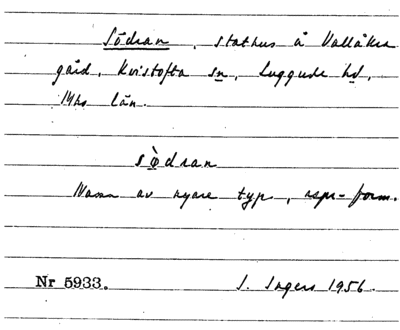 Södran, stathus å Vallåkra
gård, Kvistofta sn, Luggude hd,
Mhs län.
sö̀dran
Namn av nyare typ, rspr-form.
Nr 5933. I. Ingers 1956.